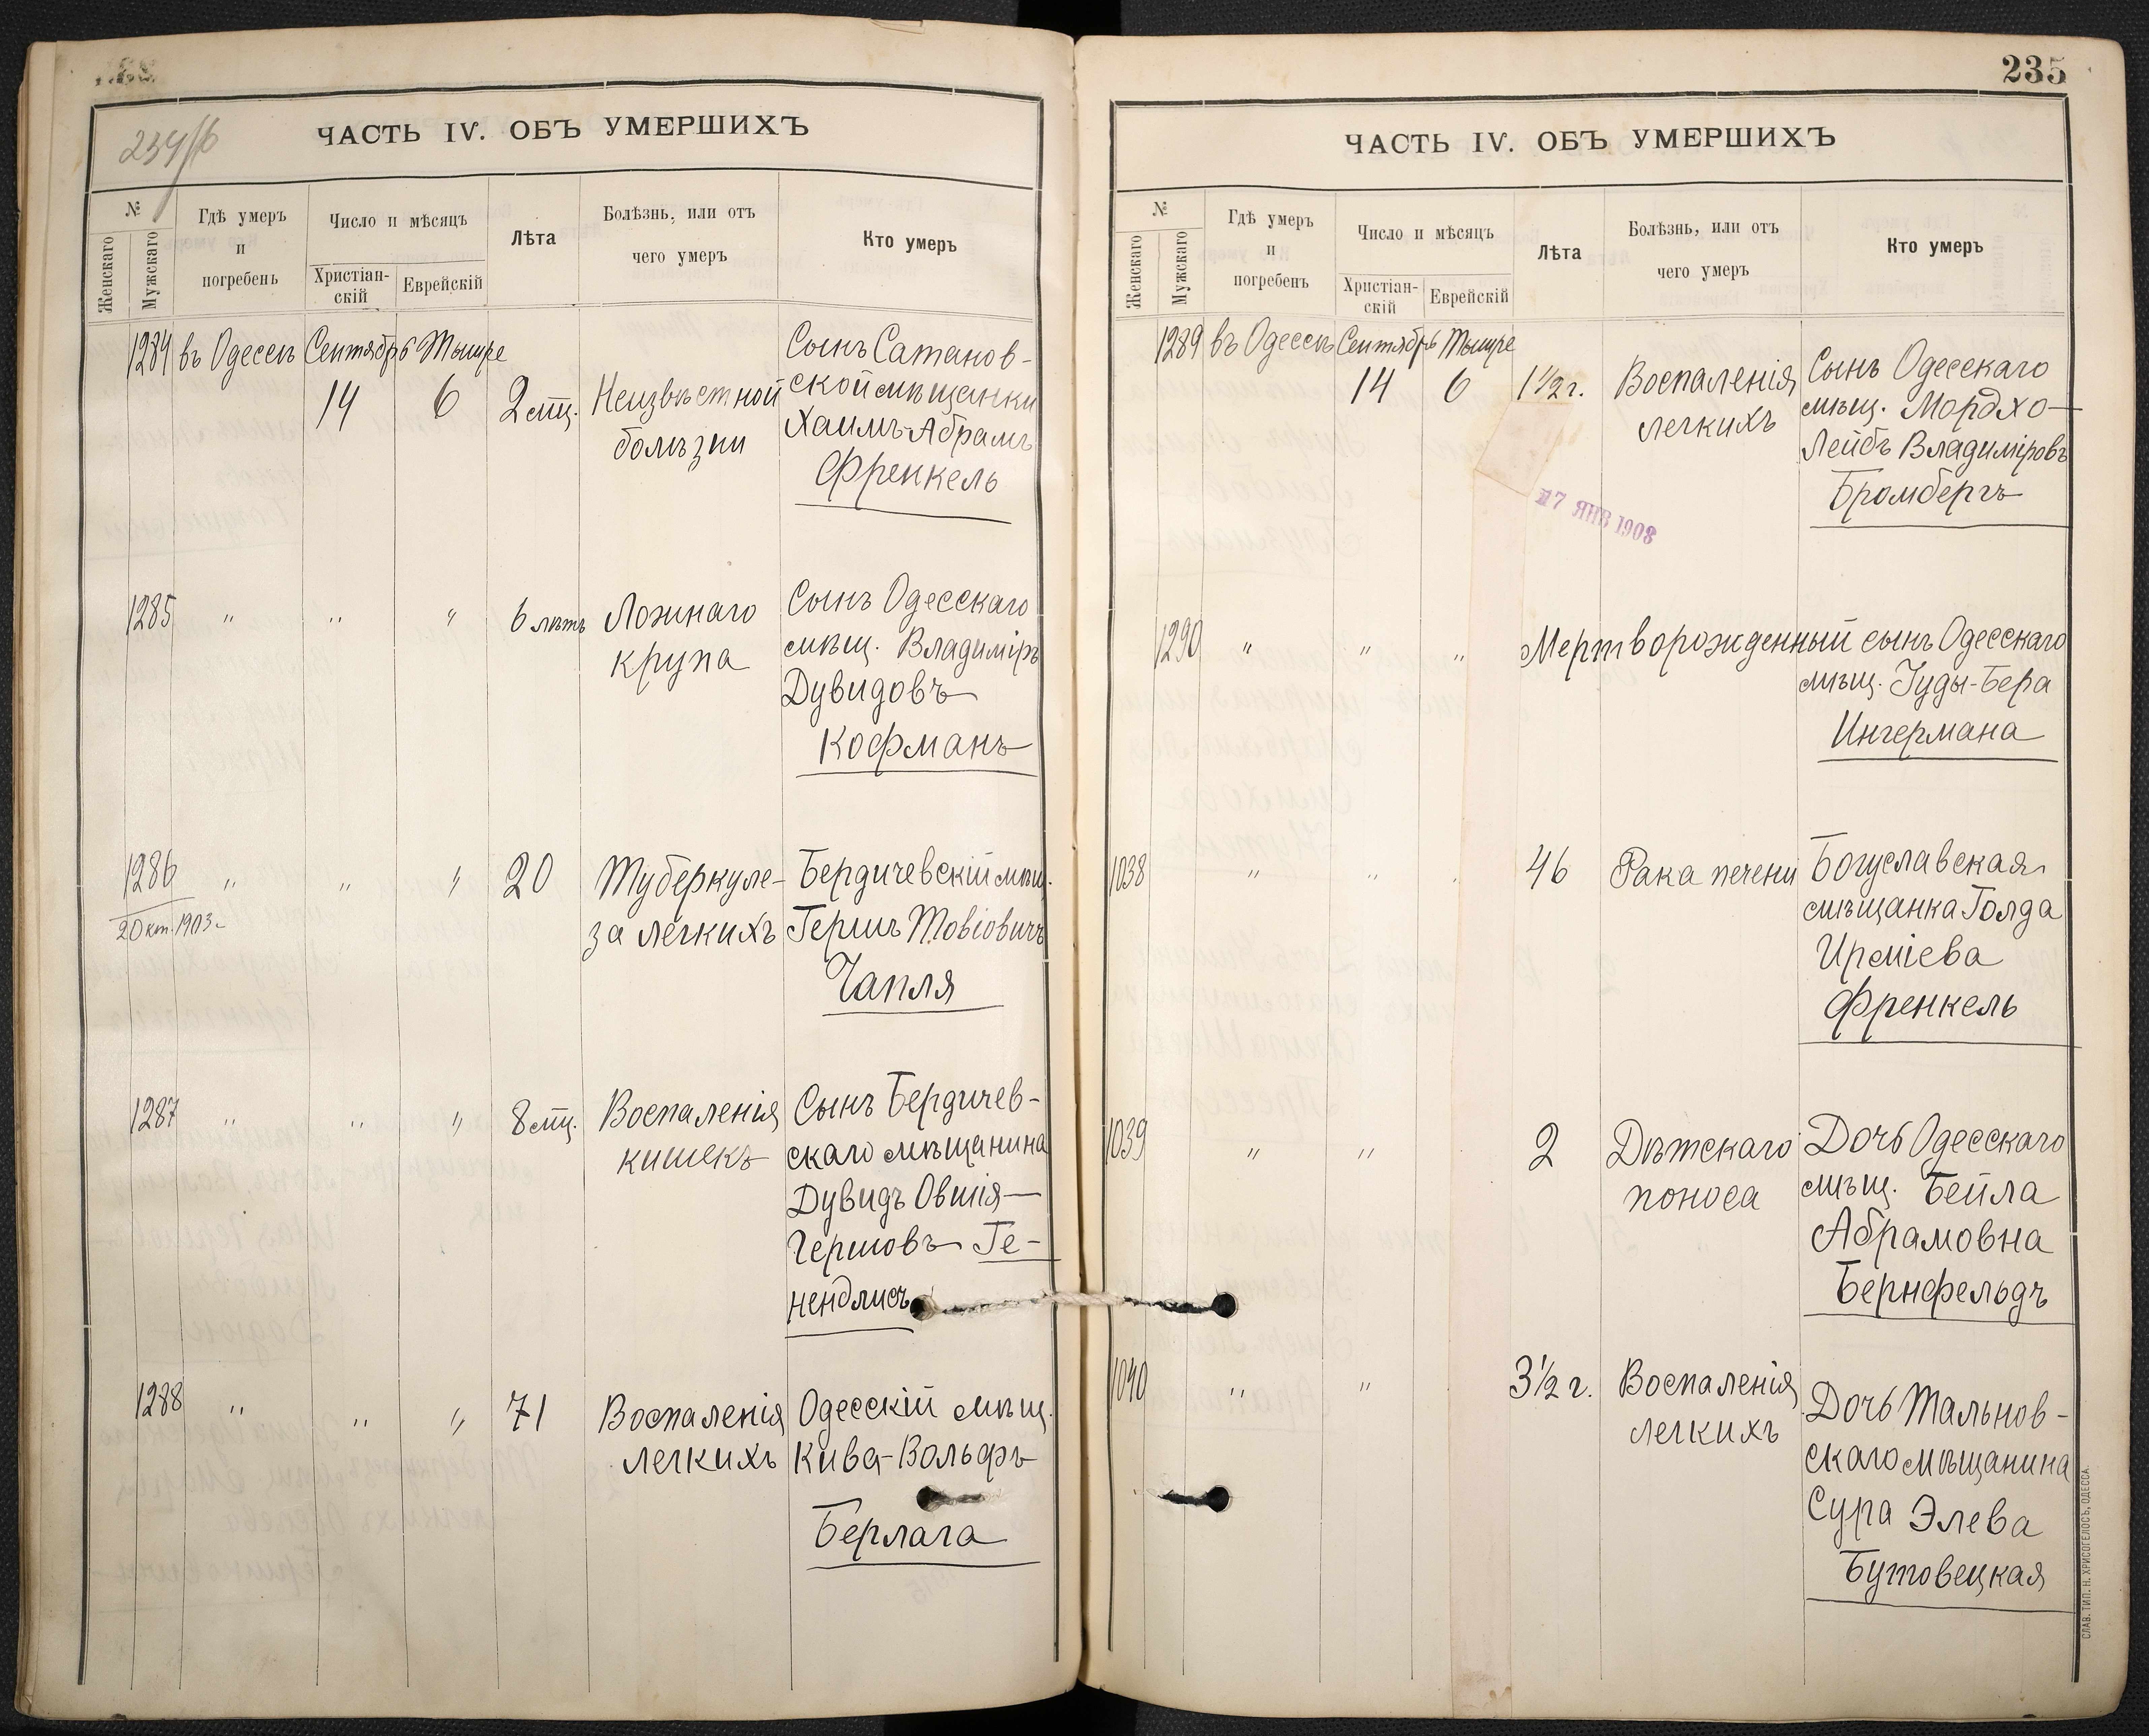 234/б
ЧАСТЬ IV. ОБЪ УМЕРШИХЪ
№
Женскаго
Мужскаго
Гдѣ умеръ
и
погребенъ
Число и мѣсяцъ
Христіан-
скій
Еврейскій
Лѣта
Болѣзнь, или отъ
чего умеръ
Кто умеръ
1284 въ Одессѣ Сентябрь Тышре
14 6 2 мц. Неизвѣстной
болѣзни
Сынъ Сатанов-
ской мѣщанки
Хаимъ-Абрамъ
Френкель
1285 " " " 6 лѣтъ Ложнаго
крупа
Сынъ Одесскаго
мѣщ. Владиміръ
Дувидовъ
Кофманъ
1286 " " " 20 Туберкуле-
за легкихъ
2 Окт. 1903 г.
Бердичевскій мѣщ.
Гершъ Товіовичъ
Чапля
1287 " " " 8 мц. Воспаленія
кишекъ
Сынъ Бердичев-
скаго мѣщанина
Дувидъ Овшія
Гершовъ Ге-
нендлисъ
1288 " " " 71 Воспаленія
легкихъ
Одесскій мѣщ.
Кива-Вольфъ
Берлага
235
ЧАСТЬ IV. ОБЪ УМЕРШИХЪ
№
Женскаго
Мужскаго
Гдѣ умеръ
и
погребенъ
Число и мѣсяцъ
Христіан-
скій
Еврейскій
Лѣта
Болѣзнь, или отъ
чего умеръ
Кто умеръ
1289 въ Одессѣ Сентябрь Тышре
14 6 1½ г. Воспаленія
легкихъ
17 ЯНВ 1908
Сынъ Одесскаго
мѣщ. Мордхо-
Лейбъ Владиміровъ
Бромбергъ
1290 " " " Мертворожденный сынъ Одесскаго
мѣщ. Іуды-Бера
Ингермана
1038 " " " 46 Рака печени
Богуславская
мѣщанка Голда
Ирміева
Френкель
1039 " " 2 Дѣтскаго
поноса
Дочь Одесскаго
мѣщ. Бейла
Абрамовна
Бернфельдъ
1040 " " 3½ г. Воспаленія
легкихъ
Дочь Тальнов-
скаго мѣщанина
Сура Элева
Бутовецкая
СЛАВ. ТИП. Н. ХРИСОГЕЛОСЪ, ОДЕССА.